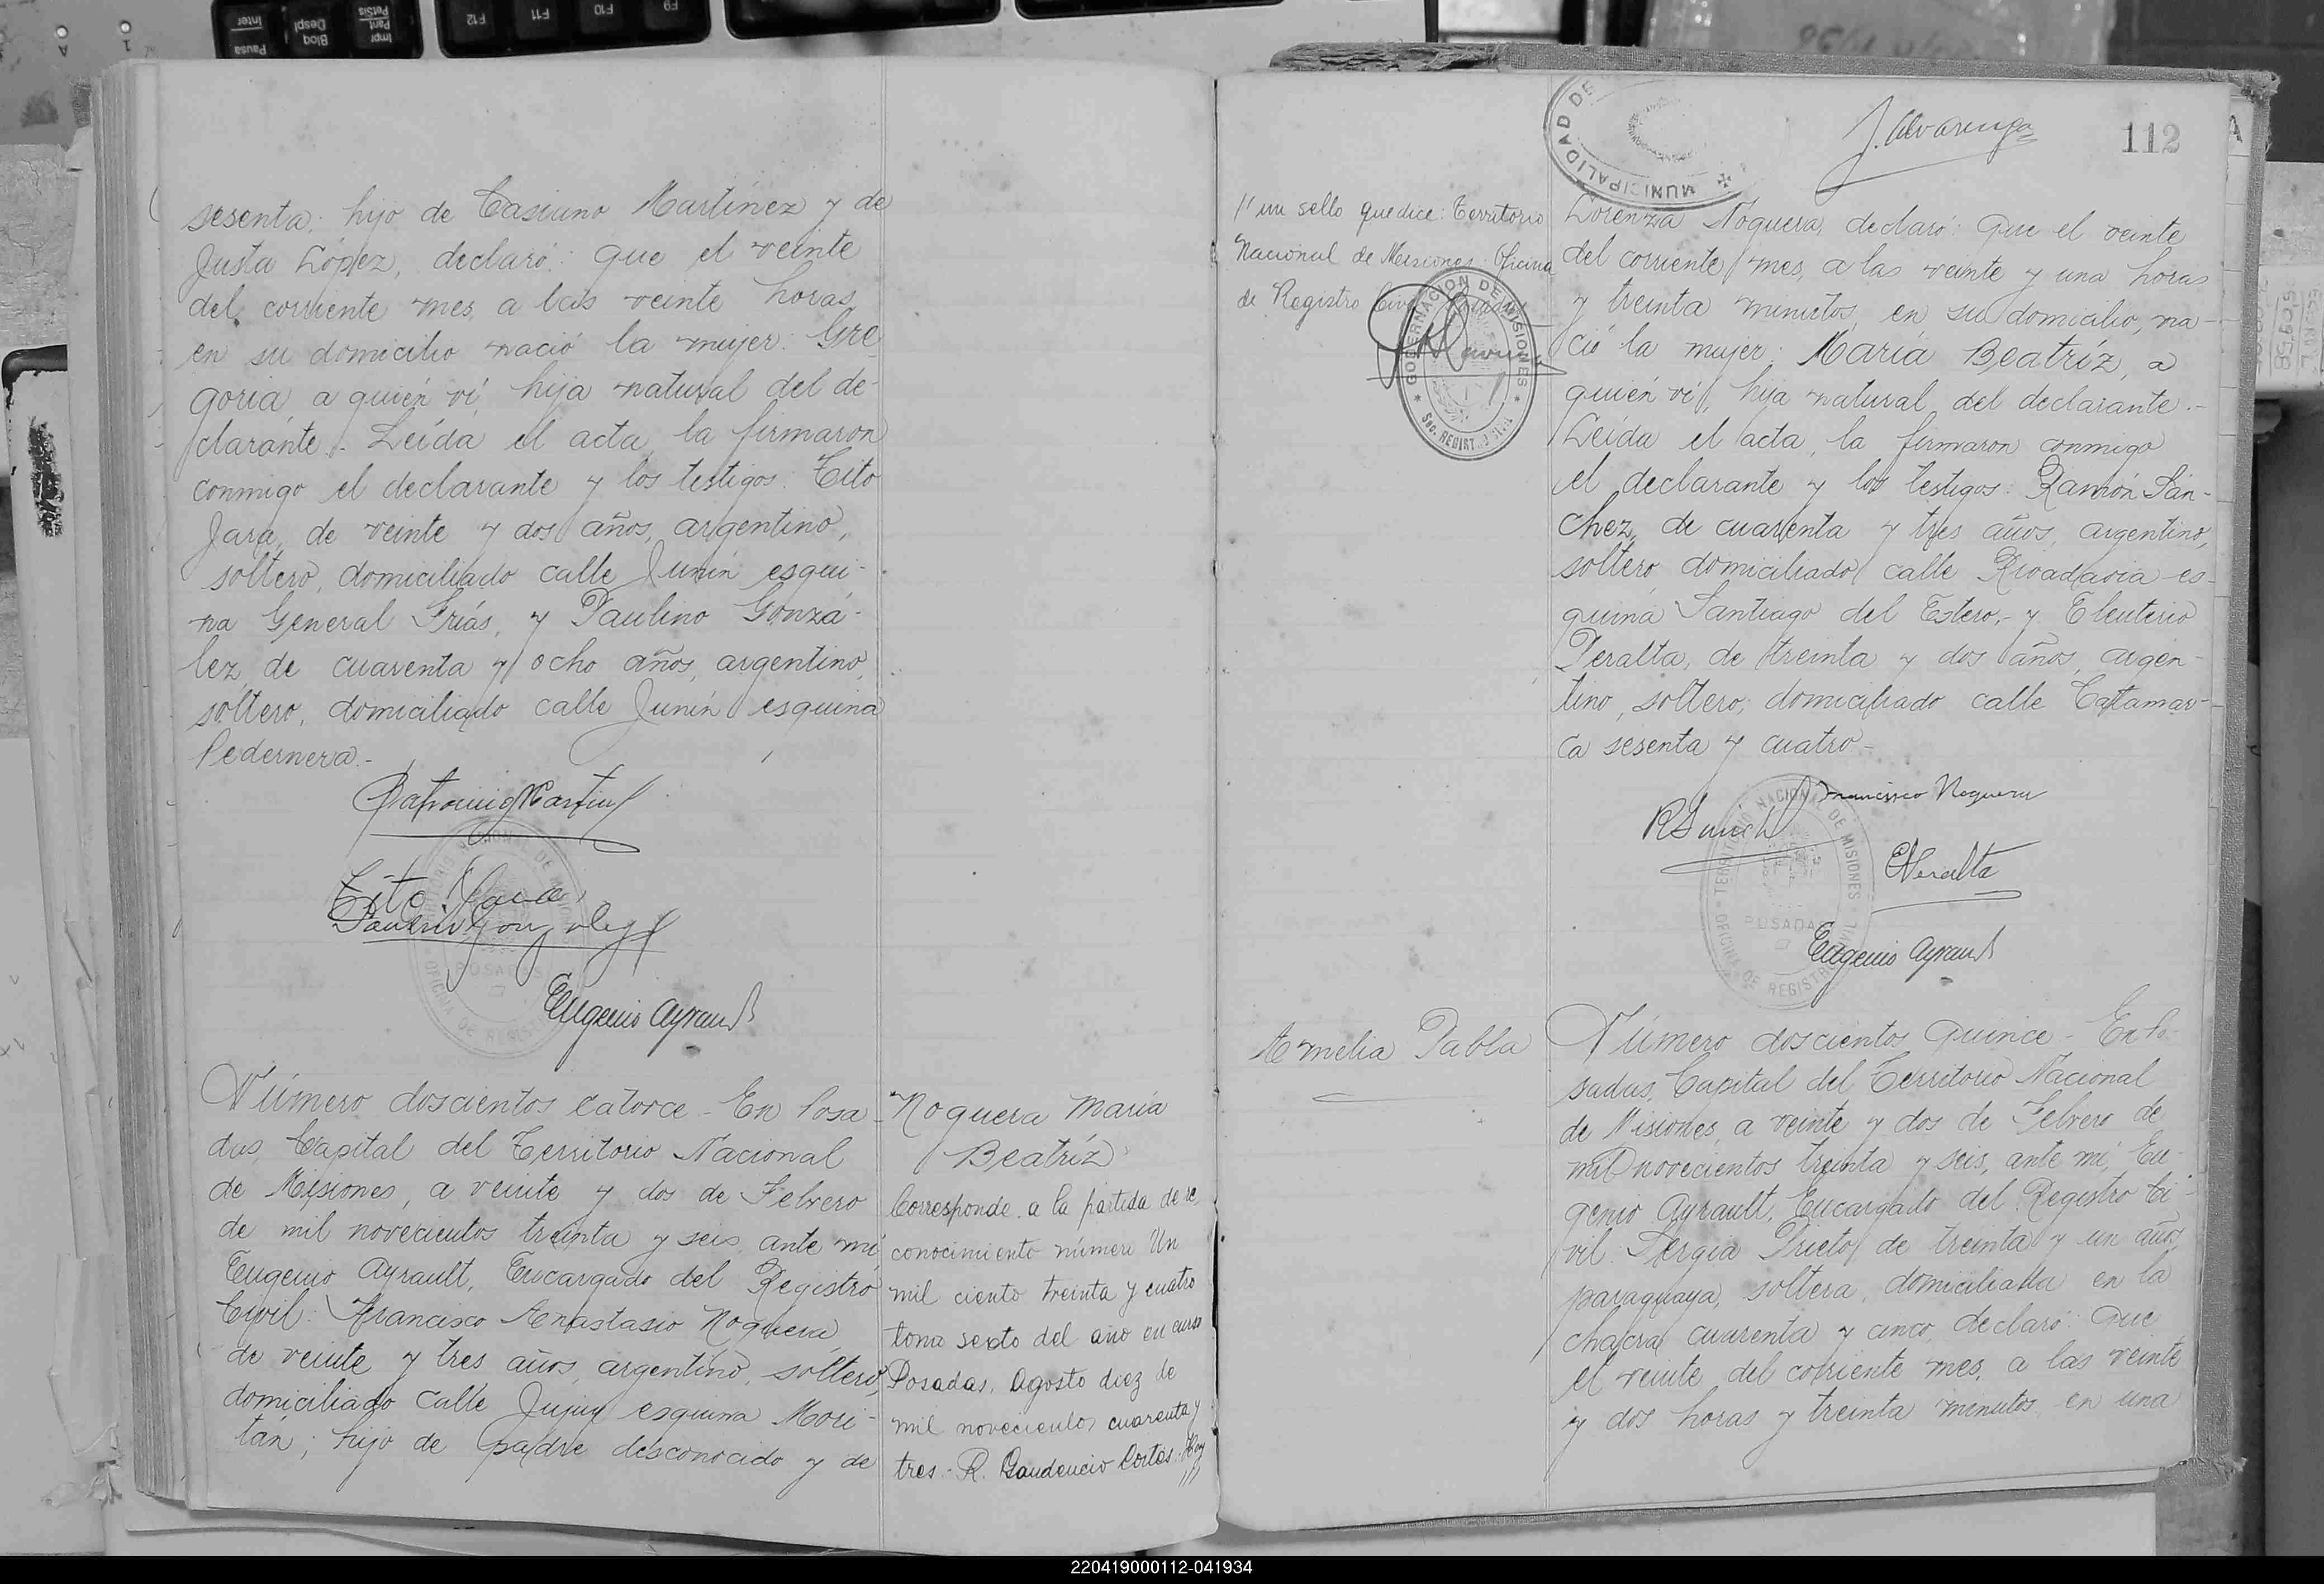 sesenta; hijo de Casiano Martínez y de
Justa López, declaró: que el veinte
del corriente mes, a las veinte horas,
en su domicilio nació la mujer: Gre-
goria, a quién ví, hija natural del de-
clarante.- Leída el acta, la firmaron
conmigo el declarante y los testigos: Tito
Jara, de veinte y dos años, argentino,
soltero, domiciliado calle Junín esqui-
na General Frías, y Paulino Gonzá-
lez, de cuarenta y ocho años, argentino,
soltero, domiciliado calle Junín esquina
Pedernera.-
Tito Jara
Eugenio Ayrault
Número doscientos catorce - En Posa-
das, Capital del Territorio Nacional
de Misiones, a veinte y dos de Febrero
de mil novecientos treinta y seis, ante mí
Eugenio Ayrault, Encargado del Registro
Civil: Francisco Anastasio Noguera,
de veinte y tres años, argentino, soltero,
domiciliado calle Jujuy esquina Mori-
tán; hijo de padre desconocido y de
Noguera María
Beatríz
Corresponde a la partida de re-
conocimiento número Un
mil ciento treinta y cuatro
tomo sexto del año en curso
Posadas, Agosto diez de
mil novecientos cuarenta y
tres.- R. Gaudencio Cortés. Hay
MUNICIPALIDAD DE
J. Alvarenga
112
// un sello que dice: Territorio
Nacional de Misiones. Oficina
de Registro Civil
GOBERNACION DE MISIONES
Lorenza Noguera, declaró: Que el veinte
del corriente mes, a las veinte y una horas
y treinta minutos, en su domicilio, na-
ció la mujer: María Beatríz, a
quién ví, hija natural del declarante.-
Leída el acta, la firmaron conmigo
el declarante y los testigos: Ramón Sán-
chez, de cuarenta y tres años, argentino,
soltero, domiciliado calle Rivadavia es-
quina Santiago del Estero,- y Eleuterio
Peralta, de treinta y dos años, argen-
tino, soltero, domiciliado calle Catamar-
ca sesenta y cuatro.-
Francisco Noguera
EPeralta
TERRITORIO NACIONAL DE MISIONES
POSADAS
OFICINA DE REGISTRO CIVIL
Eugenio Ayrault
Amelia Pabla
Número doscientos quince - En Po-
sadas, Capital del Territorio Nacional
de Misiones, a veinte y dos de Febrero de
mil novecientos treinta y seis, ante mí, Eu-
genio Ayrault, Encargado del Registro Ci-
vil: Sergia Prieto, de treinta y un años,
paraguaya, soltera, domiciliada en la
chacra cuarenta y cinco, declaró: Que
el veinte del corriente mes, a las veinte
y dos horas y treinta minutos, en una
220419000112-041934